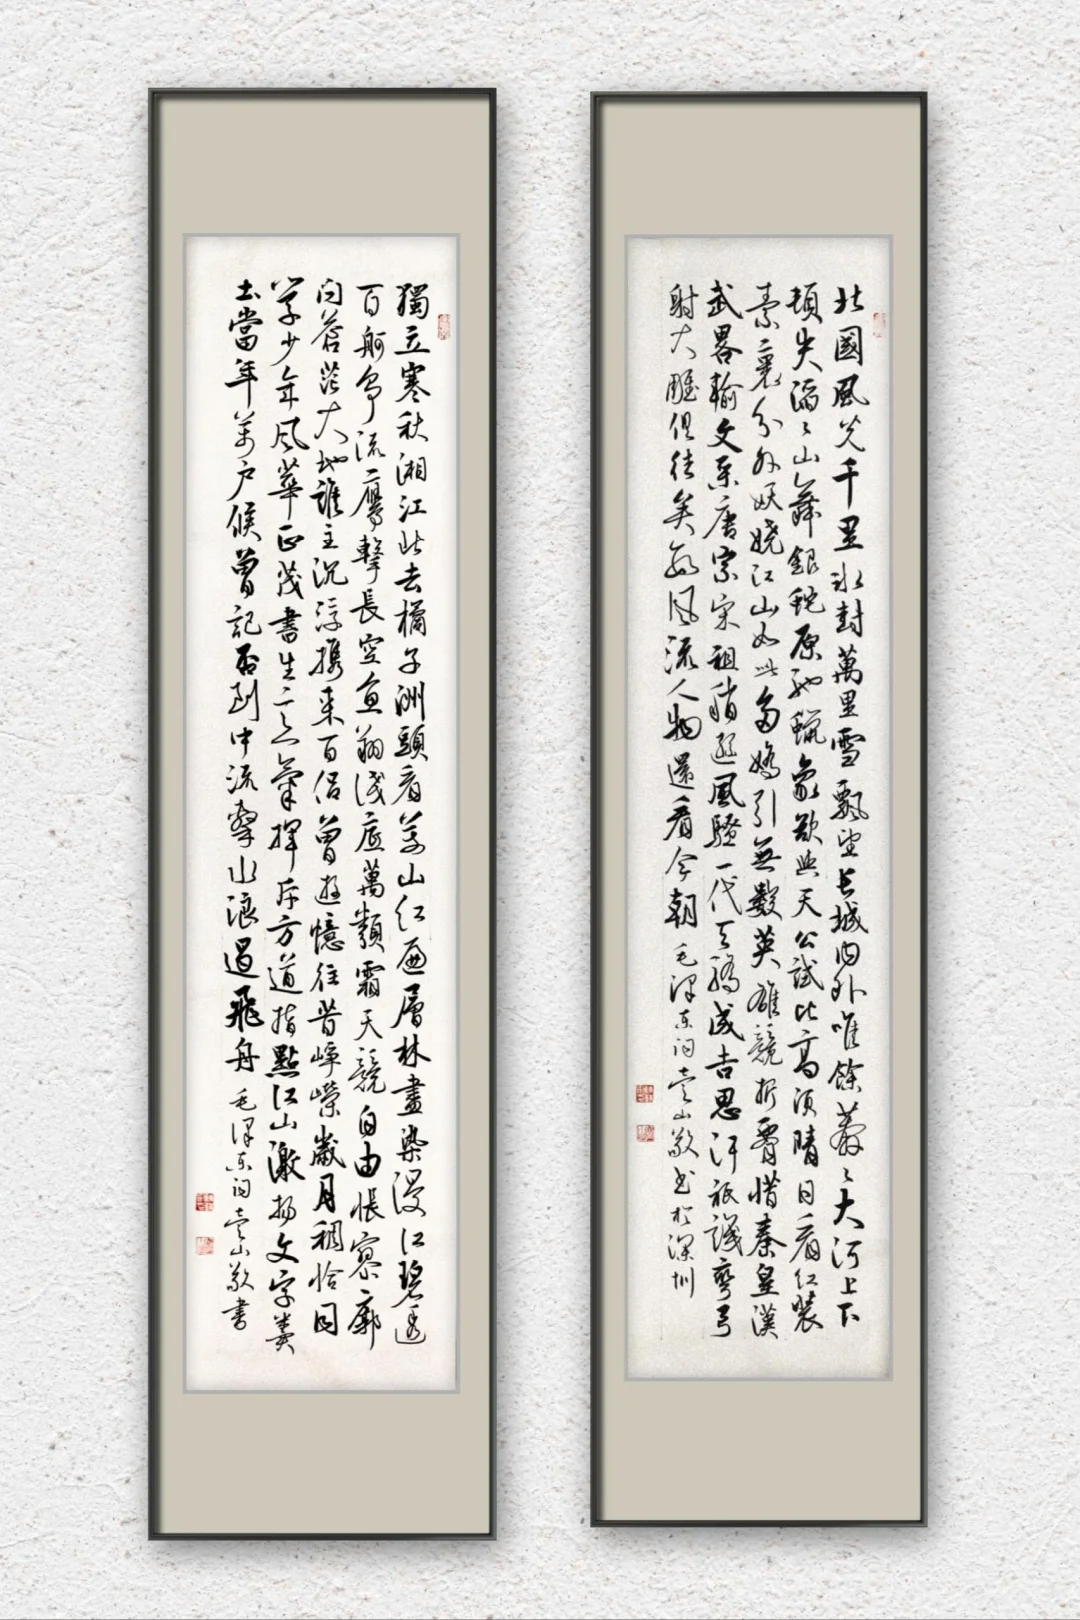 北國風光千里冰封萬里雪飄望長城内外唯餘莽〻大河上下
頓失滔〻山舞銀蛇原馳蠟象欲與天公試比高須晴日看紅裝
素裹分外妖嬈江山如此多嬌引無數英雄競折腰惜秦皇漢
武畧輸文采唐宗宋祖稍遜風騷一代天驕成吉思汗祇識彎弓
射大雕俱往矣數風流人物還看今朝 毛澤東词壹山敬书於深圳
獨立寒秋湘江北去橘子洲頭看萬山红遍層林盡染漫江碧透
百舸爭流鷹擊長空魚翔淺底萬類霜天競自由悵寥廓
问蒼茫大地誰主沉浮攜来百侣曾遊憶往昔崢嶸歲月稠恰同
學少年风華正茂書生意氣揮斥方遒指點江山激扬文字糞
土當年萬户侯曾記否到中流擊水浪遏飛舟 毛澤東词壹山敬書